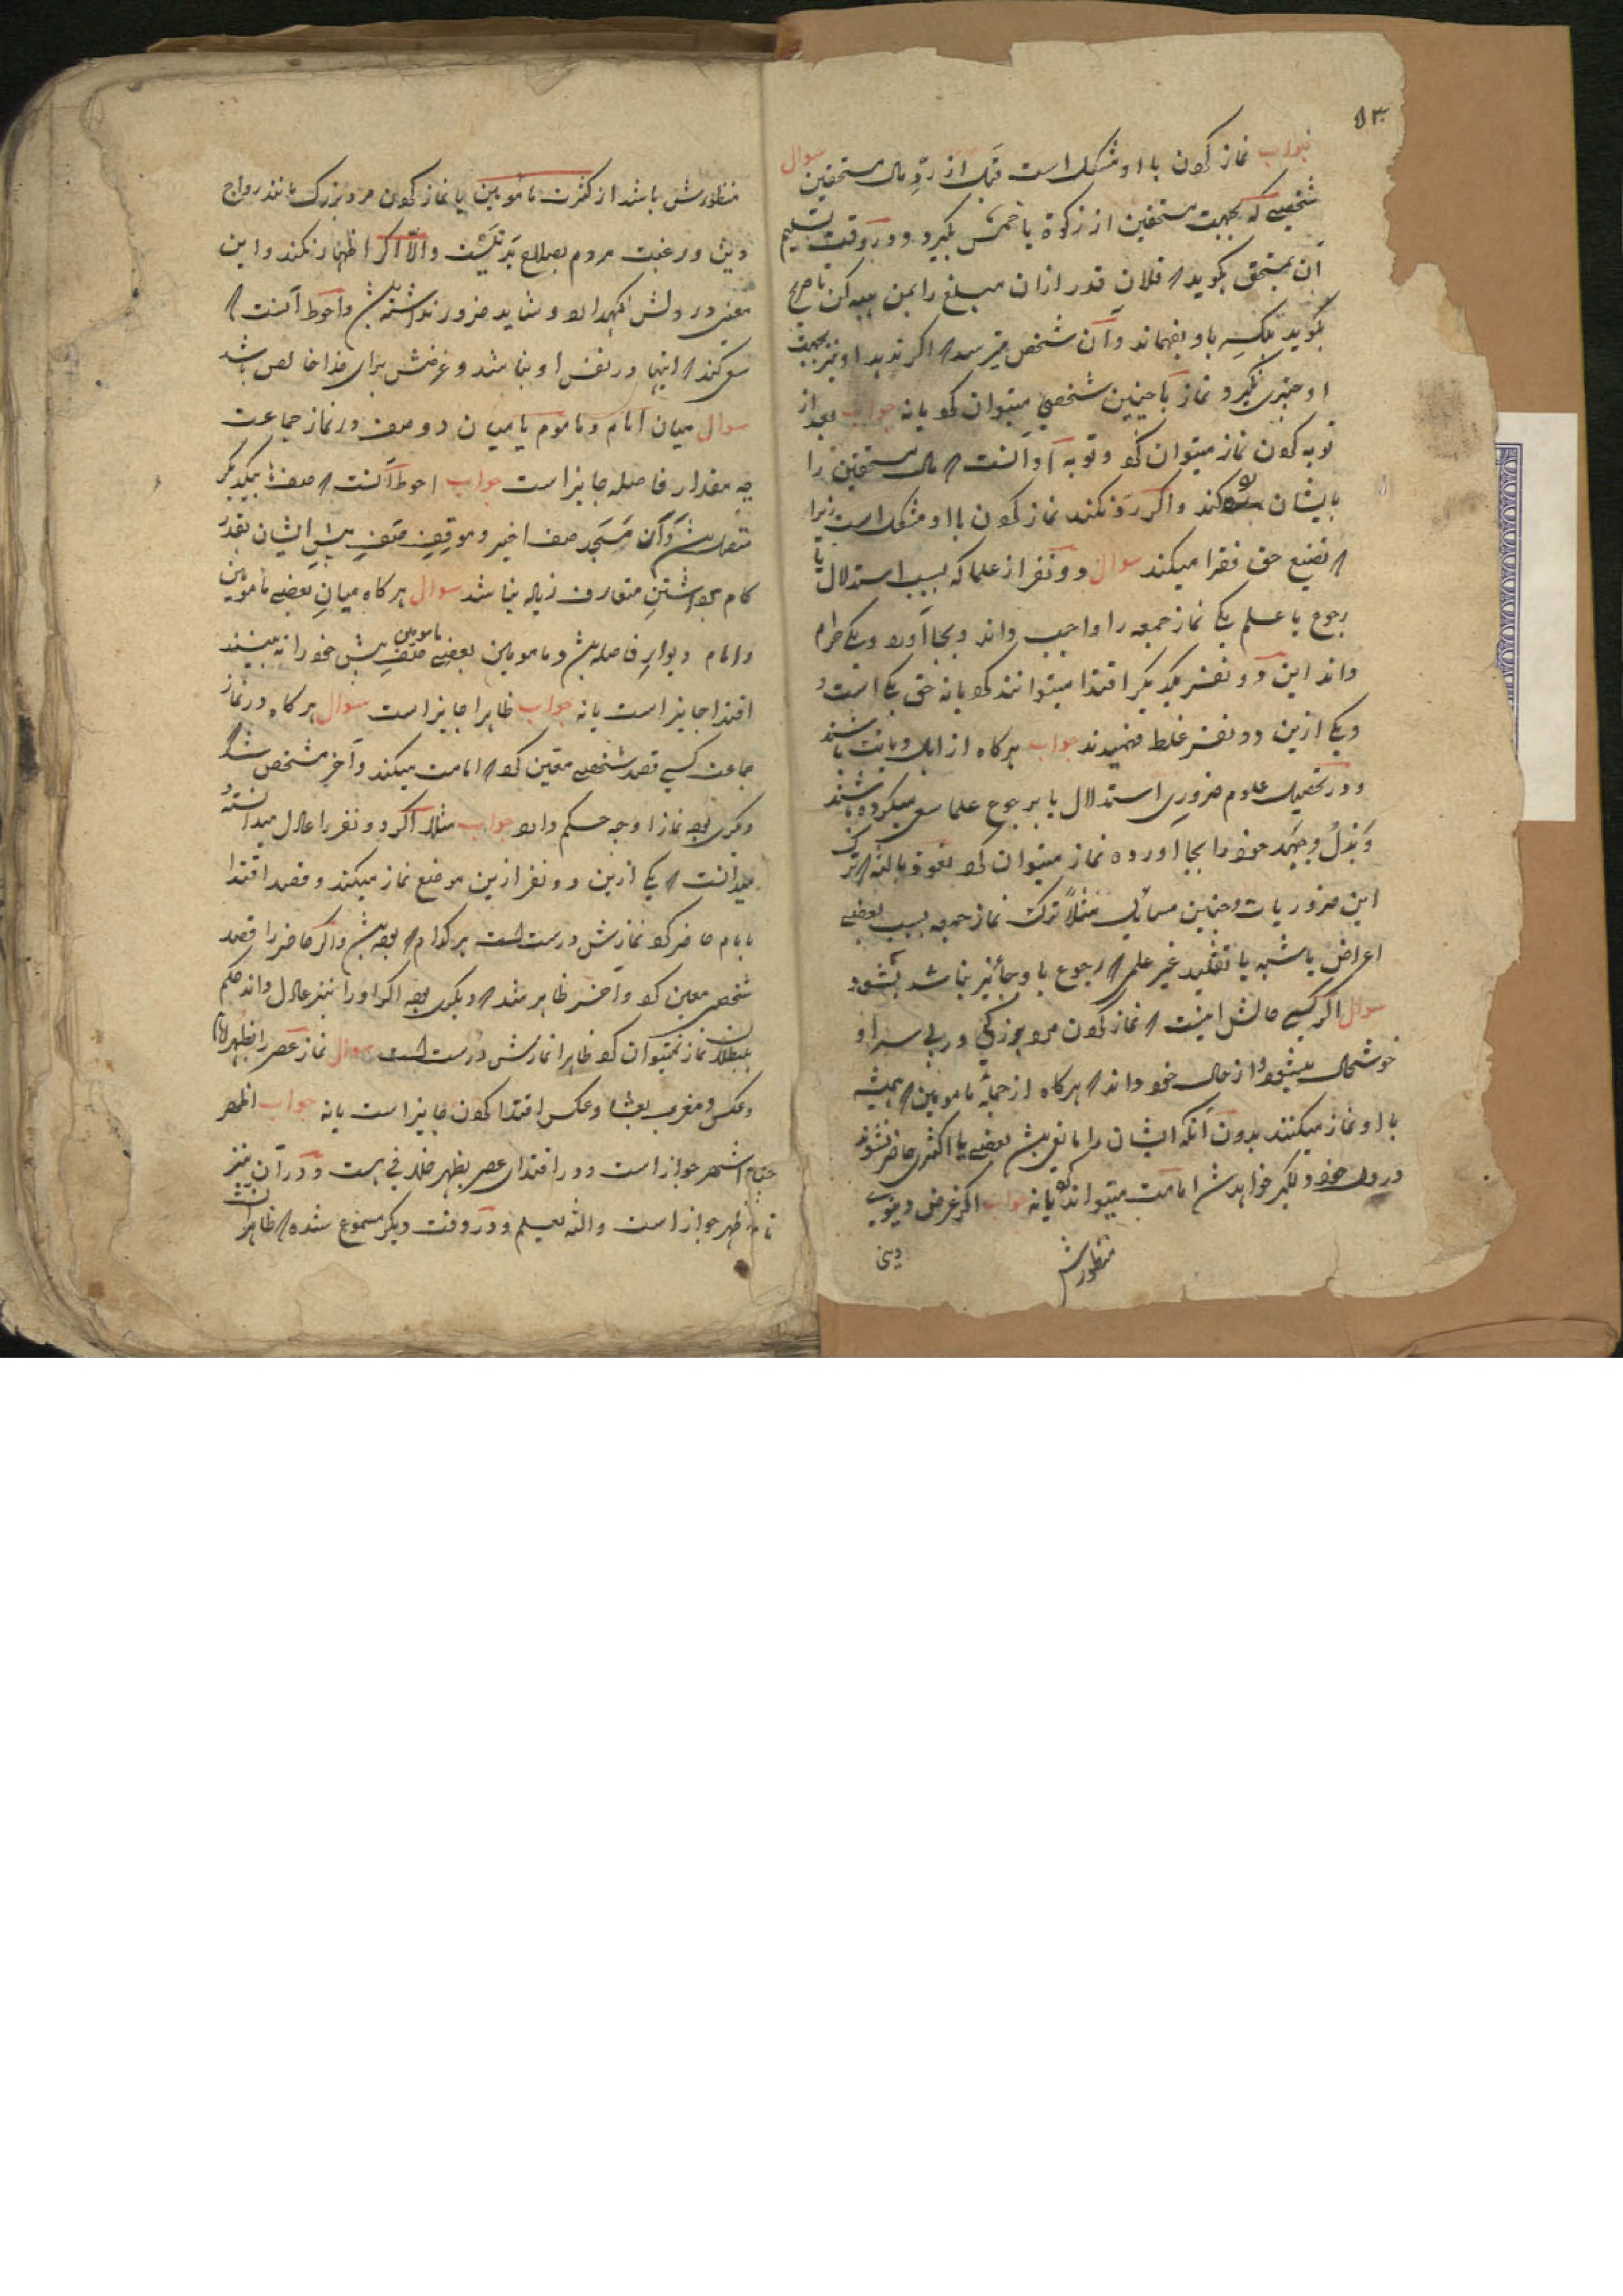 ۵۳
جواب نماز کردن با او مشکل است قبل از ردّ مال مستحقین سوال
شخصیے که بجهت مستحقین از زکوة یا خمس بگیرد و در وقت تسلیم
آن بمستحق بگوید که فلان قدر ازان مبلغ را بمن هبه کن یا صریح
نگوید بلکه باو بفهماند و آن شخص میترسد که اگر ندهد او نیز بجهت
او چیزی نگیرد نماز با چنین شخصی میتوان کرد یا نه جواب بعد از
توبه کردن نماز میتوان کرد و توبه او آنست که مال مستحقین را
بایشان رد کند و اگر رد نکند نماز کردن با او مشکل است زیرا
که تضیع حق فقرا میکند سوال دو نفر از علما که بسبب استدلال یا
رجوع با علم یکی نماز جمعه را واجب داند و بجا آورد و یکی حرام
داند این دو نفر بیکدیگر اقتدا میتوانند کرد یا نه حق یکی است و
و یکی ازین دو نفر غلط فهمیدند جواب هرگاه از اهل دیانت باشند
و در تحصیل علوم ضروری استدلال یا برجوع علما سعی میکرده باشند
و بذل جهد خود را بجا آورده نماز میتوان کرد نعوذ بالله که ترک
این ضروریات و چنین مسائلی مثلاً ترک نماز جمعه بسبب بعضی
اعراض یا شبه یا تقلید غیر علمی که رجوع باو جائز نباشد بشود
سوال اگر کسی حالش اینست که نماز کردن مرد بزرگی در پی سر او
خوشحال میشود و از حال خود داند که هرگاه از جمله مامومین که همیشه
با او نماز میکنند بدون آنکه ایشان را مانعی باشد بعضی یا اکثری حاضر نشوند
در دل خود دلگیر خواهد شد امامت میتواند کرد یا نه جواب اگر غرض دینوی
منظورش
دینی
منظورش باشد از کثرت مامومین یا نماز کردن مرد بزرگ مانند رواج
دین و رغبت مردم بصلاح بد نیست و الّا اگر اظهار نکند و این
معنی در دلش نگهدارد و شاید ضرور نداشته باشد و احوط آنست که
سعی کند که اینها در نفس او نباشد و غرضش برای خدا خالص باشد
سوال میان امام و ماموم یا میان دو صف در نماز جماعت
چه مقدار فاصله جایز است جواب احوط آنست که صفها بیکدیگر
متصل باشد و آن مسجد صف اخیر و موقف صف پیش ایشان بقدر
کام برداشتن متعارف زیاده نباشد سوال هرگاه میان بعضی مامومین
و امام دیوار فاصله باشد و مامومین بعضی مامومین صف پیش خود را نه بینند
اقتدا جایز است یا نه جواب ظاهرا جایز است سوال هرگاه در نماز
جماعت کسی قصد شخصی معین کرد که امامت میکند و آخر مشخص شد که
دیگری بوده نماز او چه حکم دارد جواب مثلا اگر دو نفر را عادل میدانسته و
میدانست که یکی ازین دو نفر ازین موضع نماز میکند و قصد اقتدا
بامام حاضر کرد نمازش درست است هر کدام که بوده باشد و اگر حاضر را قصد
شخص معین کرد و آخر ظاهر شد که دیگری بوده اگر او را نیز عادل داند حکم
ببطلان نماز نمیتوان کرد ظاهرا نمازش درست است سوال نماز عصر را بظهر امام
و عکس و مغرب بعشا و عکس اقتدا کردن جایز است یا نه جواب اظهر
و اشهر جواز است و در اقتدای عصر بظهر خلافی هست و در آن نیز
ظاهر جواز است والله یعلم و در وقت دیگر مسموع شده که ظاهرا